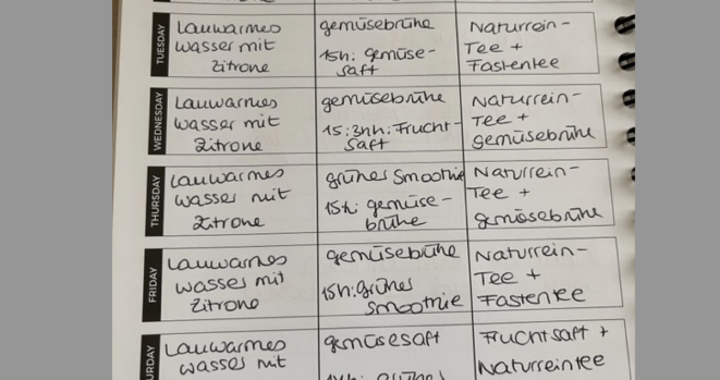 TUESDAY
Lauwarmes
wasser mit
Zitrone
gemüsebrühe
15h: gemüse-
saft
Naturrein-
Tee +
Fastentee
WEDNESDAY
Lauwarmes
wasser mit
Zitrone
gemüsebrühe
15:3hh: Frucht-
saft
Naturrein-
Tee +
gemüsebrühe
THURSDAY
Lauwarmes
wasser mit
Zitrone
grünes Smoothie
15h: gemüse-
brühe
Naturrein-
Tee +
gemüsebrühe
FRIDAY
Lauwarmes
wasser mit
Zitrone
gemüsebrühe
15h: grünes
Smoothie
Naturrein-
Tee +
Fastentee
URDAY
Lauwarmes
wasser mit
gemüsesaft
Fruchtsaft +
Naturreintee